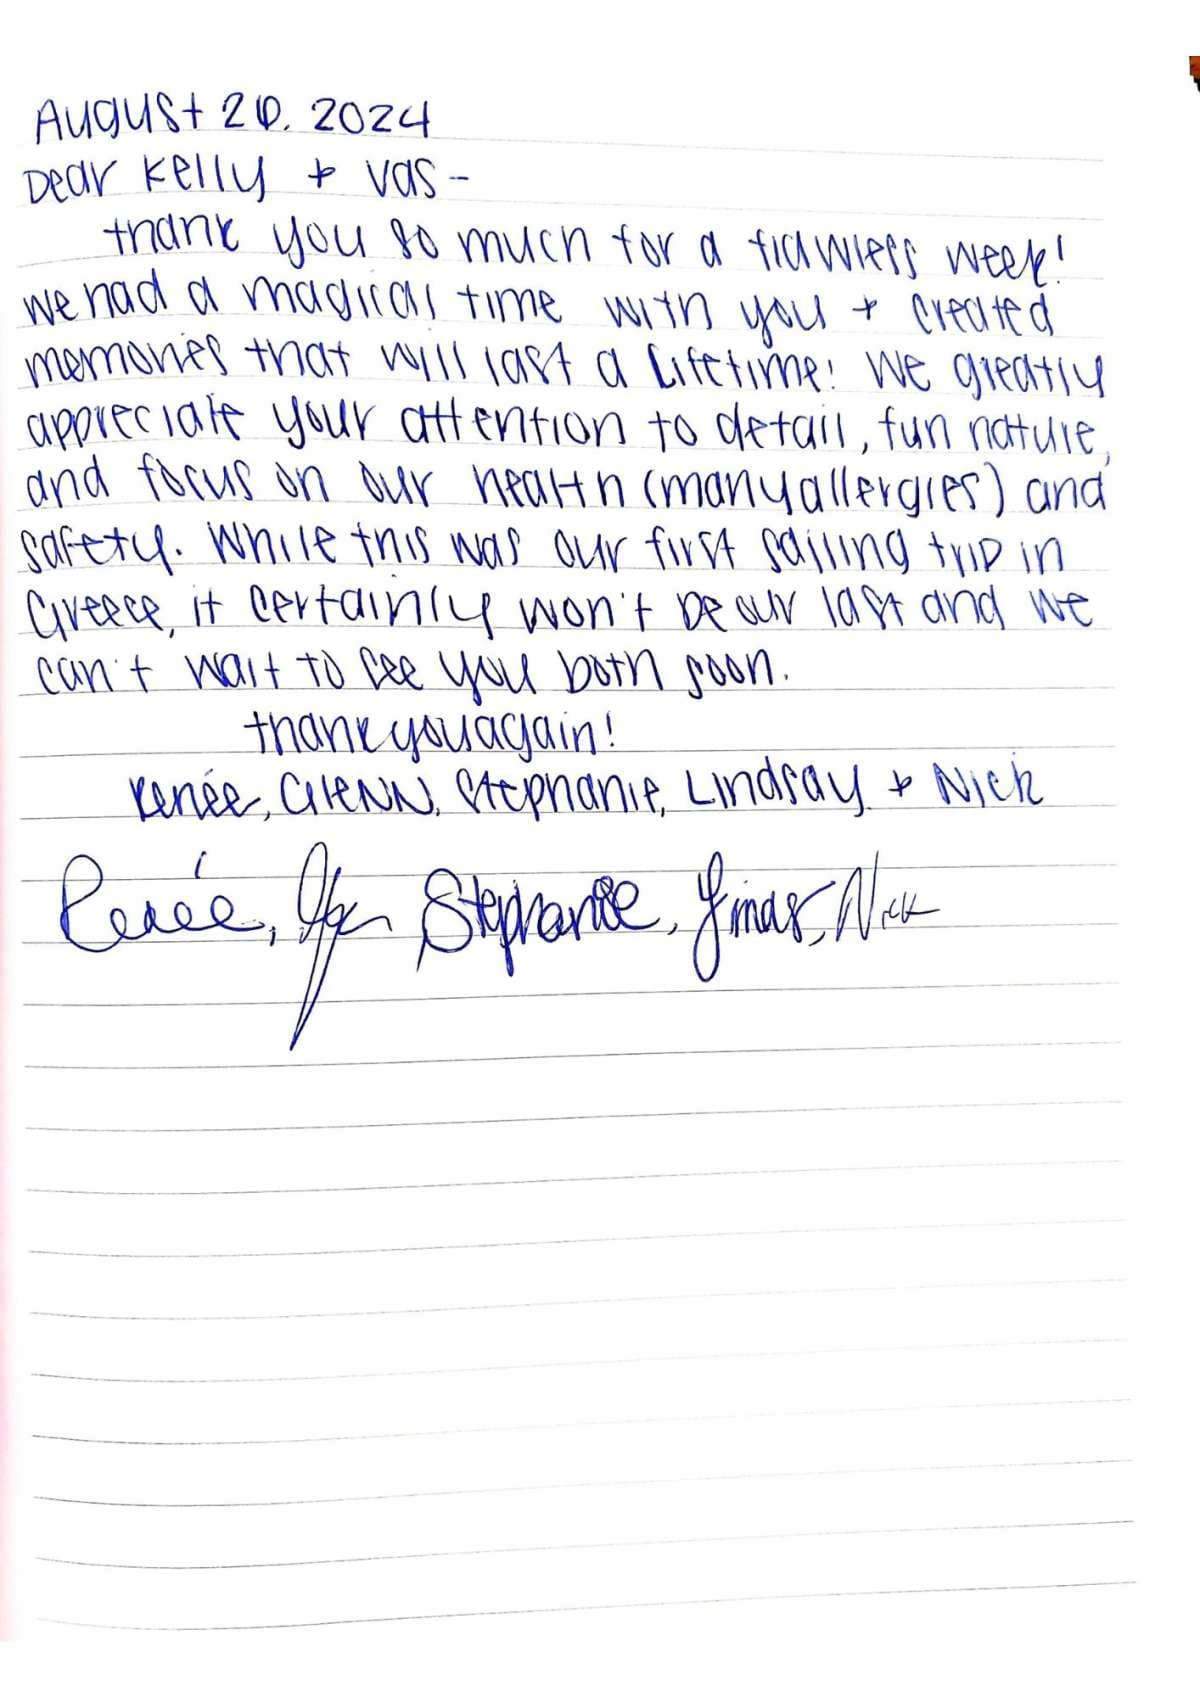 August 26, 2024
Dear Kelly + Vas -
Thank you so much for a flawless week!
We had a magical time with you + created
memories that will last a lifetime! We greatly
appreciate your attention to detail, fun nature,
and focus on our health (many allergies) and
safety. While this was our first sailing trip in
Greece, it certainly won't be our last and we
can't wait to see you both soon.
Thank you again!
Renée, Glenn, Stephanie, Lindsay + Nick
Renée, Stephanie, Nick